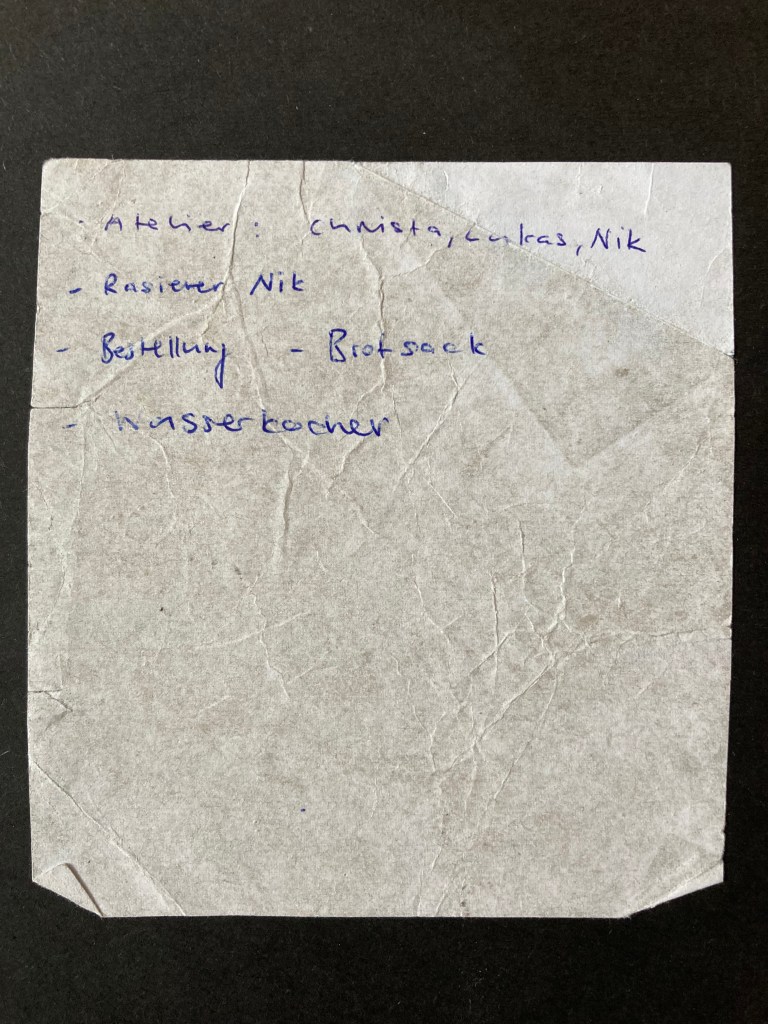 - Atelier: Christa, Lukas, Nik
- Rasierer Nik
- Bestellung - Brotsack
- Wasserkocher